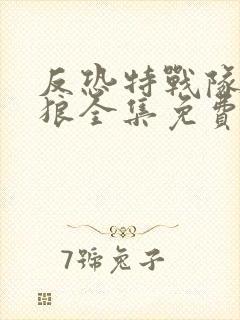 反恐特戰隊
狼全集免費
7號兔子